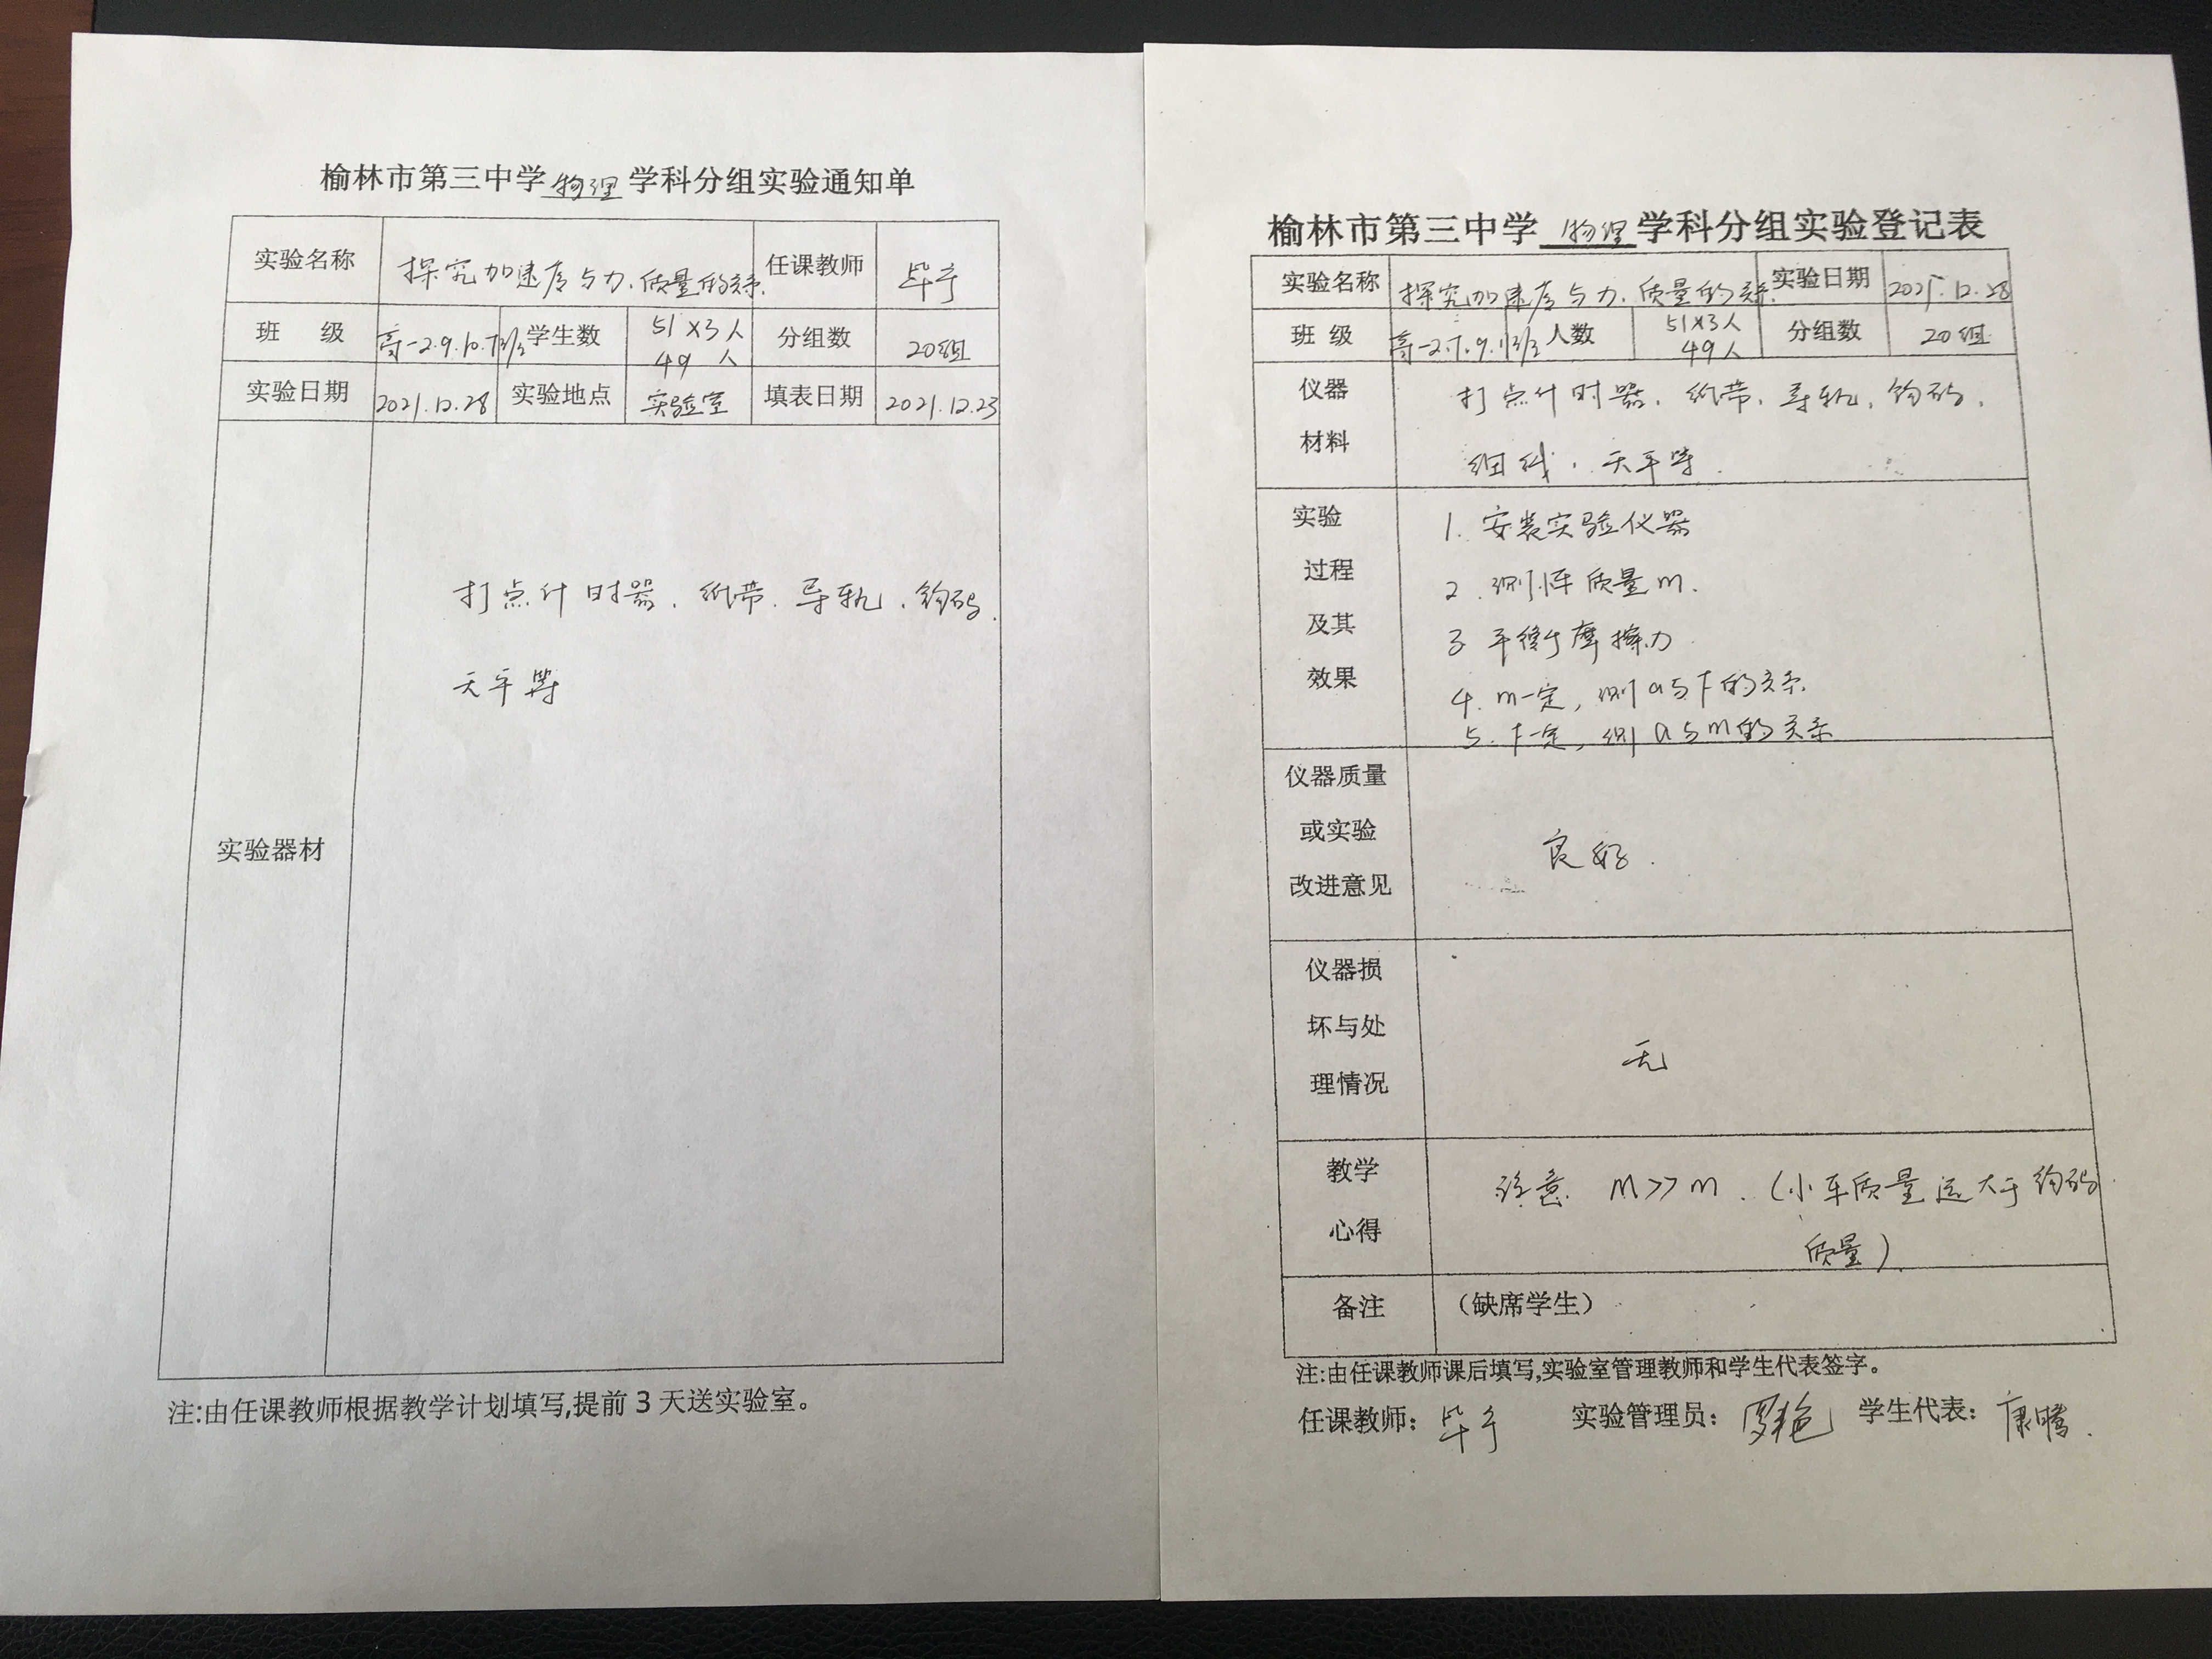 榆林市第三中学 物理 学科分组实验通知单
实验名称 探究加速度与力、质量的关系. 任课教师 毕宁
班 级 高一2.9.10. 学生数 51×3人 49人 分组数 20组
实验日期 2021.12.28 实验地点 实验室 填表日期 2021.12.23
实验器材
打点计时器、纸带、导轨、钩码、
天平等
注:由任课教师根据教学计划填写,提前3天送实验室。
榆林市第三中学 物理 学科分组实验登记表
实验名称 探究加速度与力、质量的关系. 实验日期 2021.12.28
班 级 高一2.7.9. 人数 51×3人 49人 分组数 20组
仪器材料
打点计时器、纸带、导轨、钩码、
细线、天平等.
实验过程及其效果
1. 安装实验仪器
2. 测小车质量m.
3 平衡摩擦力
4. m一定,测a与F的关系.
5. F一定,测a与m的关系
仪器质量或实验改进意见
良好.
仪器损坏与处理情况
无
教学心得
注意 M>>m.(小车质量远大于钩码
质量)
备注 (缺席学生)
注:由任课教师课后填写,实验室管理教师和学生代表签字。
任课教师: 毕宁 实验管理员: 罗艳 学生代表: 康腾.